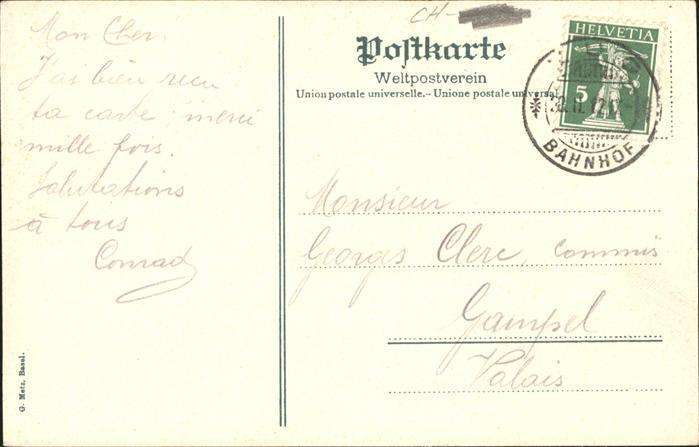 CH-
Postkarte
Weltpostverein
Union postale universelle.- Unione postale universale
HELVETIA
5
BAHNHOF
Mon Cher.
J'ai bien reçu
ta carte, merci
mille fois.
Salutations
à tous
Conrad
Monsieur
Georges Clerc, commis
Gampel
Valais
G. Metz, Basel.